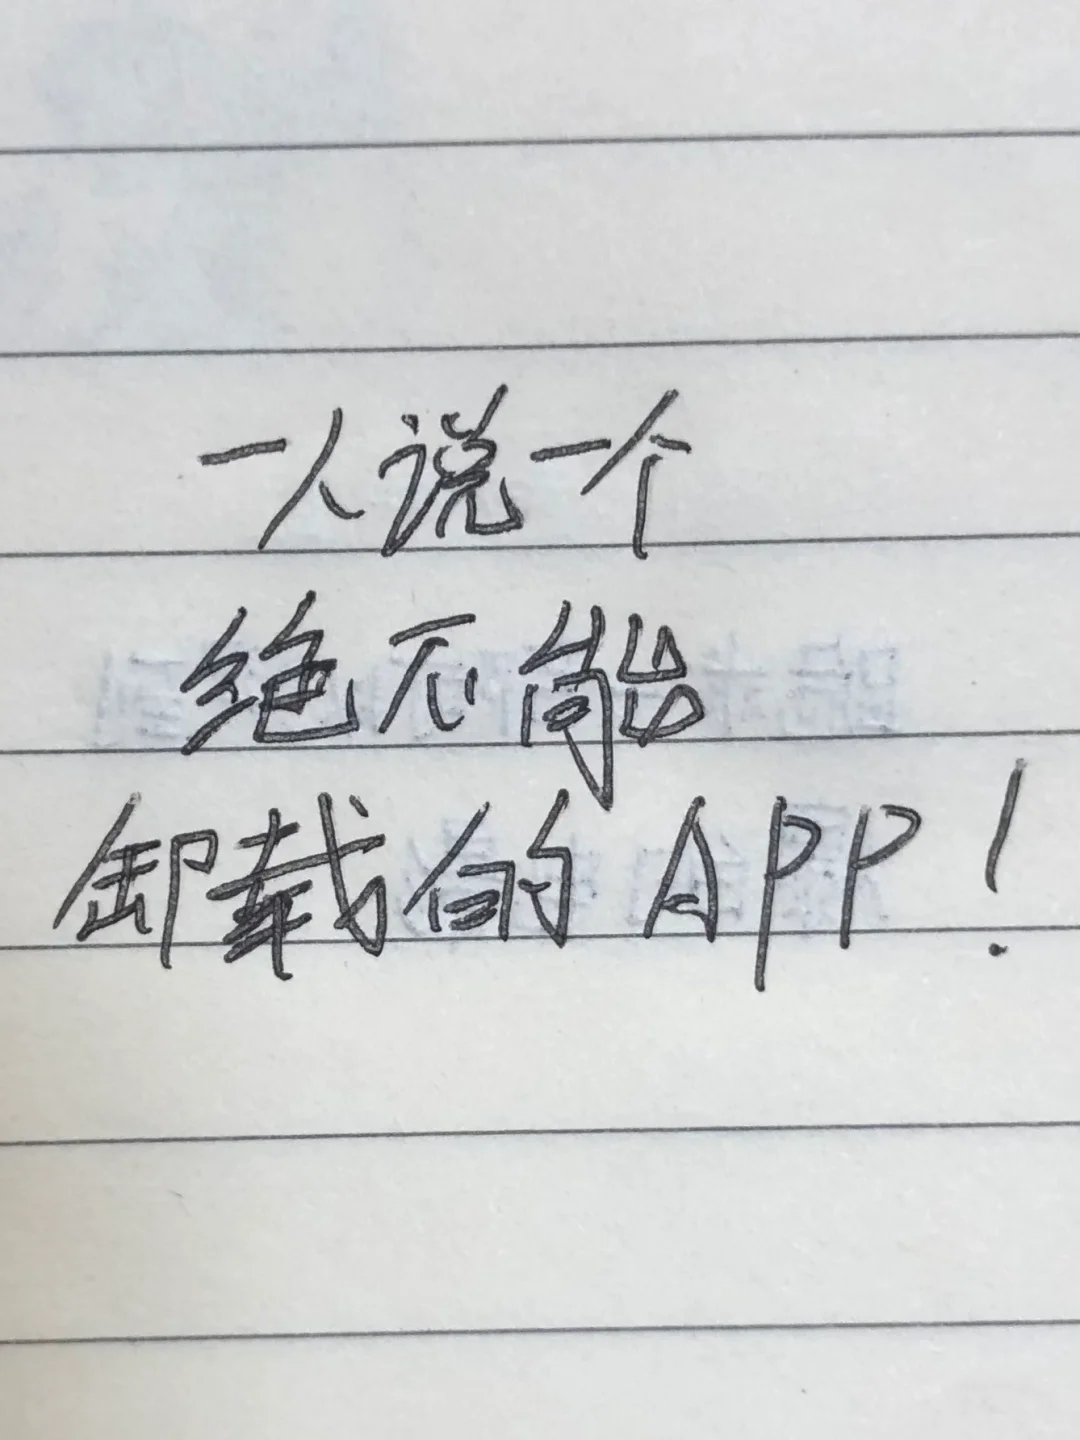 一人说一个
绝不能
卸载的APP！